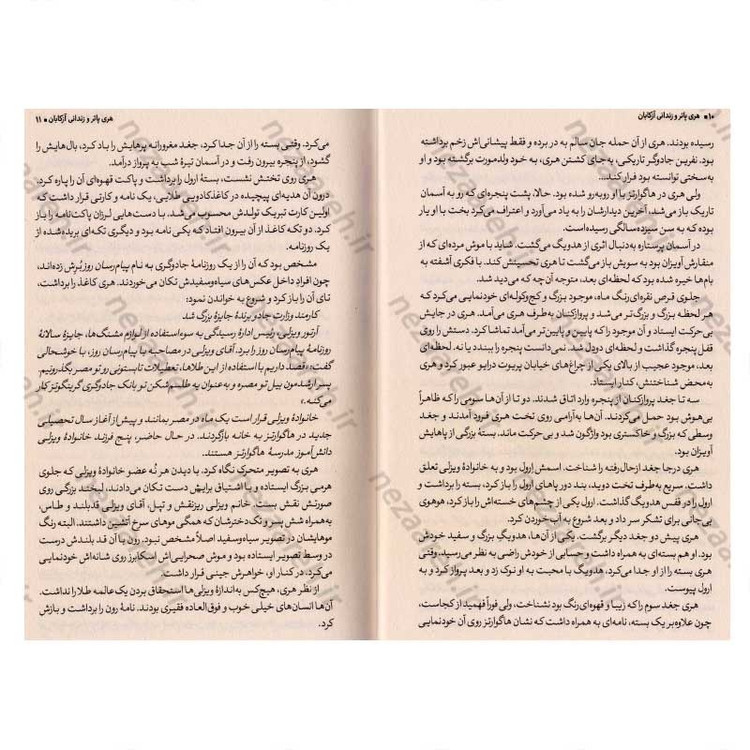 ۱۰ ■ هری پاتر و زندانی آزکابان
رسیده بودند. هری از آن حمله جان سالم به در برده و فقط پیشانی‌اش زخم برداشته
بود. نفرین جادوگر تاریکی، به‌جای کشتن هری، به خود ولدمورت برگشته بود و او
به‌سختی توانسته بود فرار کند...
ولی هری در هاگوارتز با او روبه‌رو شده بود. حالا، پشت پنجره‌ای که رو به آسمان
تاریک باز می‌شد، آخرین دیدارشان را به یاد می‌آورد و اعتراف می‌کرد بخت با او یار
بوده که به سن سیزده‌سالگی رسیده است.
در آسمان پرستاره به‌دنبال اثری از هدویگ می‌گشت. شاید با موش مرده‌ای که از
منقارش آویزان بود به سویش باز می‌گشت تا هری تحسینش کند. با فکری آشفته به
بام‌ها خیره شده بود که لحظه‌ای بعد، متوجه آن چه که می‌دید شد.
جلوی قرص نقره‌ای‌رنگ ماه، موجود بزرگ و کج‌وکوله‌ای خودنمایی می‌کرد که
هر لحظه بزرگ و بزرگ‌تر می‌شد و پروازکنان به‌طرف هری می‌آمد. هری در جایش
بی‌حرکت ایستاد و آن موجود را که پایین و پایین‌تر می‌آمد تماشا کرد. دستش را روی
قفل پنجره گذاشت و لحظه‌ای دودل شد. نمی‌دانست پنجره را ببندد یا نه. لحظه‌ای
بعد، موجود عجیب از بالای یکی از چراغ‌های خیابان پریوت درایو عبور کرد و هری
به‌محض شناختنش، کنار ایستاد.
سه تا جغد پروازکنان از پنجره وارد اتاق شدند. دو تا از آن‌ها سومی را که ظاهراً
بی‌هوش بود حمل می‌کردند. آن‌ها به‌آرامی روی تخت هری فرود آمدند و جغد
وسطی که بزرگ و خاکستری بود واژگون شد و بی‌حرکت ماند. بسته بزرگی از پاهایش
آویزان بود.
هری درجا جغد ازحال‌رفته را شناخت. اسمش ارول بود و به خانوادهٔ ویزلی تعلق
داشت. سریع به‌طرف تخت دوید، بند دور پاهای ارول را باز کرد، بسته را برداشت و
ارول را در قفس هدویگ گذاشت. ارول یکی از چشم‌های خسته‌اش را باز کرد، هوهوی
بی‌جانی برای تشکر سر داد و بعد شروع به آب خوردن کرد.
هری پیش دو جغد دیگر برگشت. یکی از آن‌ها، هدویگِ بزرگ و سفید خودش
بود. او هم بسته‌ای به همراه داشت و حسابی از خودش راضی به نظر می‌رسید. وقتی
هری بسته را از او جدا می‌کرد، هدویگ با محبت به او نوک زد و بعد پرواز کرد و به
ارول پیوست.
هری جغد سوم را که زیبا و قهوه‌ای‌رنگ بود نشناخت، ولی فوراً فهمید از کجاست،
چون علاوه‌بر یک بسته، نامه‌ای به همراه داشت که نشان هاگوارتز روی آن خودنمایی
هری پاتر و زندانی آزکابان ■ ۱۱
می‌کرد. وقتی بسته را از آن جدا کرد، جغد مغرورانه پرهایش را باد کرد، بال‌هایش را
گشود، از پنجره بیرون رفت و در آسمان تیرهٔ شب به پرواز درآمد.
هری روی تختش نشست، بستهٔ ارول را برداشت و پاکت قهوه‌ای آن را پاره کرد.
درون آن هدیه‌ای پیچیده در کاغذکادویی طلایی، یک نامه و کارتی قرار داشت که
اولین کارت تبریک تولدش محسوب می‌شد. با دست‌هایی لرزان پاکت‌نامه را باز
کرد. دو تکه کاغذ از آن بیرون افتاد که یکی نامه بود و دیگری تکه‌ای بریده‌شده از
یک روزنامه.
مشخص بود که آن را از یک روزنامهٔ جادوگری به نام پیام‌رسان روز بُرش زده‌اند،
چون افرادِ داخل عکس‌های سیاه‌وسفیدش تکان می‌خوردند. هری کاغذ را برداشت،
تای آن را باز کرد و شروع به خواندن نمود:
کارمند وزارت جادو برندهٔ جایزهٔ بزرگ شد
آرتور ویزلی، رئیس ادارهٔ رسیدگی به سوءاستفاده از لوازم مشنگ‌ها، جایزهٔ سالانهٔ
روزنامهٔ پیام‌رسان روز را برد. آقای ویزلی در مصاحبه با پیام‌رسان روز، با خوشحالی
گفت: «قصد داریم با استفاده از این طلاها، تعطیلات تابستونی رو تو مصر بگذرونیم.
پسر ارشدمون بیل تو مصره و به‌عنوان یه طلسم‌شکن تو بانک جادوگری گرینگوتز کار
می‌کنه.»
خانوادهٔ ویزلی قرار است یک ماه در مصر بمانند و پیش از آغاز سال تحصیلی
جدید در هاگوارتز به خانه بازگردند. در حال حاضر، پنج فرزند خانوادهٔ ویزلی
دانش‌آموز مدرسهٔ هاگوارتز هستند.
هری به تصویر متحرک نگاه کرد. با دیدن هر نُه عضو خانوادهٔ ویزلی که جلوی
هرمی بزرگ ایستاده و با اشتیاق برایش دست تکان می‌دادند، لبخند بزرگی روی
صورتش نقش بست. خانم ویزلی ریزنقش و تپل، آقای ویزلی قدبلند و طاس،
به‌همراه شش پسر و تک‌دخترشان که همگی موهای سرخ آتشین داشتند. البته رنگ
موهایشان در تصویر سیاه‌وسفید اصلاً مشخص نبود. رون با آن قد بلندش درست
در وسط تصویر ایستاده بود و موش صحرایی‌اش اسکابرز روی شانه‌اش خودنمایی
می‌کرد. در کنار او، خواهرش جینی قرار داشت.
از نظر هری، هیچ‌کس به‌اندازهٔ ویزلی‌ها استحقاق بردن یک عالمه طلا را نداشت.
آن‌ها انسان‌های خیلی خوب و فوق‌العاده فقیری بودند. نامهٔ رون را برداشت و بازش
کرد.
nezaaeh.ir